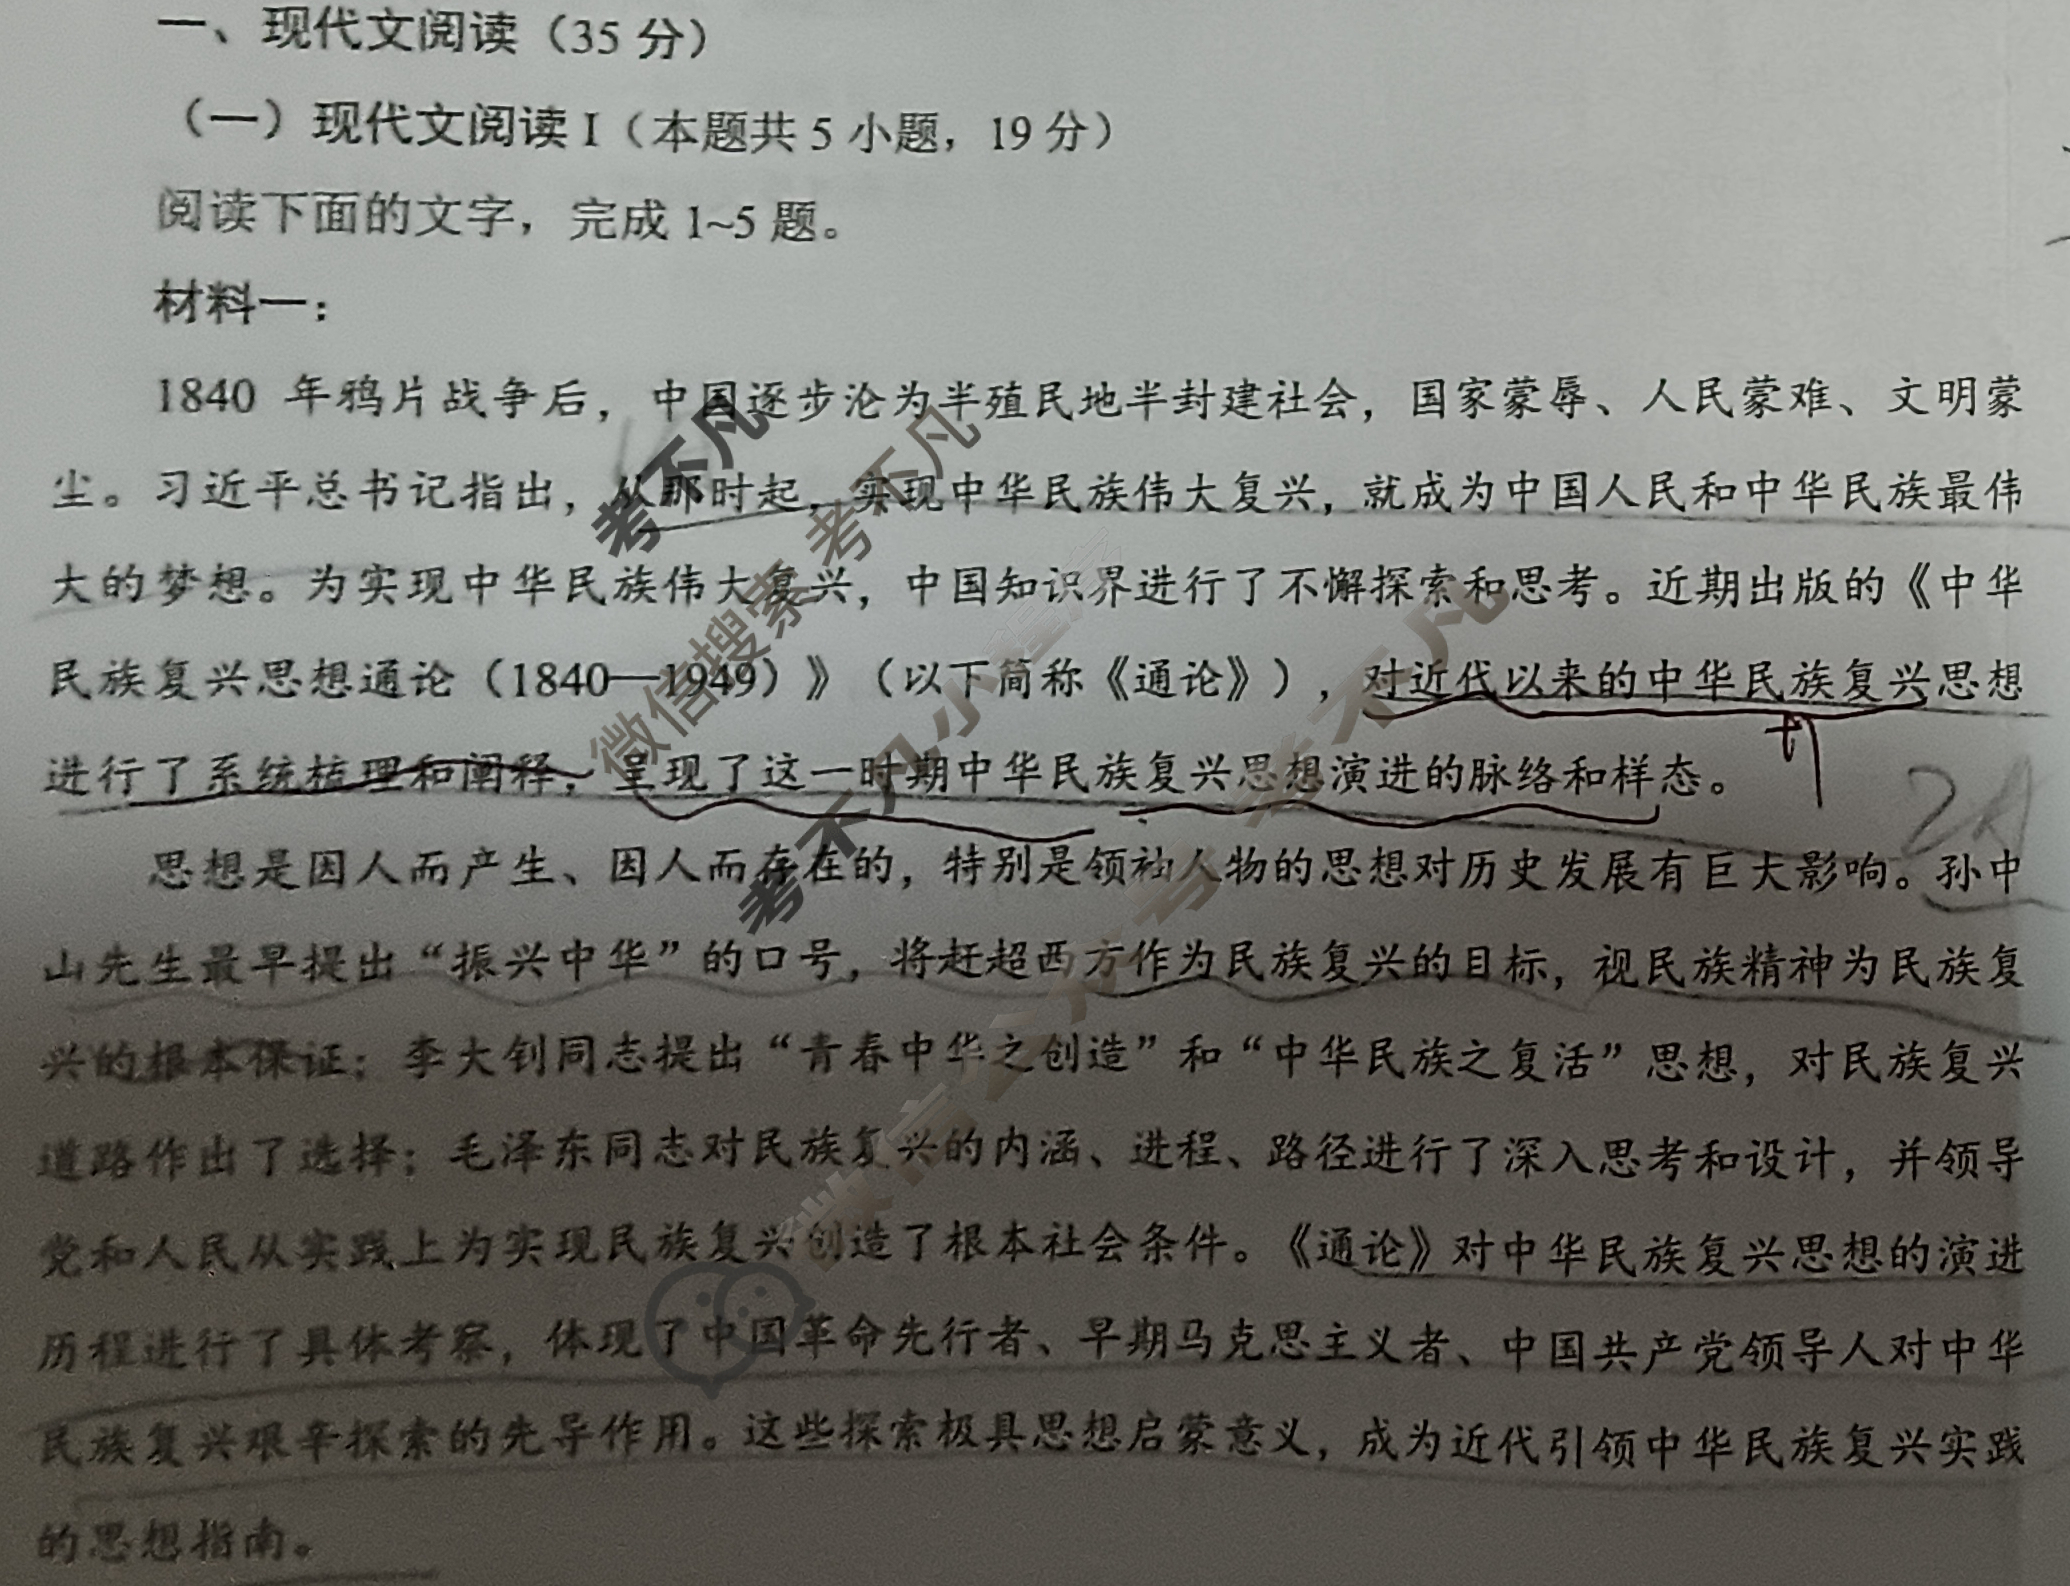 一、现代文阅读（35 分）
（一）现代文阅读 I（本题共 5 小题，19 分）
阅读下面的文字，完成 1~5 题。
材料一：
1840 年鸦片战争后，中国逐步沦为半殖民地半封建社会，国家蒙辱、人民蒙难、文明蒙
尘。习近平总书记指出，从那时起，实现中华民族伟大复兴，就成为中国人民和中华民族最伟
大的梦想。为实现中华民族伟大复兴，中国知识界进行了不懈探索和思考。近期出版的《中华
民族复兴思想通论（1840—1949）》（以下简称《通论》），对近代以来的中华民族复兴思想
进行了系统梳理和阐释，呈现了这一时期中华民族复兴思想演进的脉络和样态。
思想是因人而产生、因人而存在的，特别是领袖人物的思想对历史发展有巨大影响。孙中
山先生最早提出“振兴中华”的口号，将赶超西方作为民族复兴的目标，视民族精神为民族复
兴的根本保证；李大钊同志提出“青春中华之创造”和“中华民族之复活”思想，对民族复兴
道路作出了选择；毛泽东同志对民族复兴的内涵、进程、路径进行了深入思考和设计，并领导
党和人民从实践上为实现民族复兴创造了根本社会条件。《通论》对中华民族复兴思想的演进
历程进行了具体考察，体现了中国革命先行者、早期马克思主义者、中国共产党领导人对中华
民族复兴艰辛探索的先导作用。这些探索极具思想启蒙意义，成为近代引领中华民族复兴实践
的思想指南。
考不凡
微信搜索 考不凡
考不凡小程序
微信公众号 考不凡